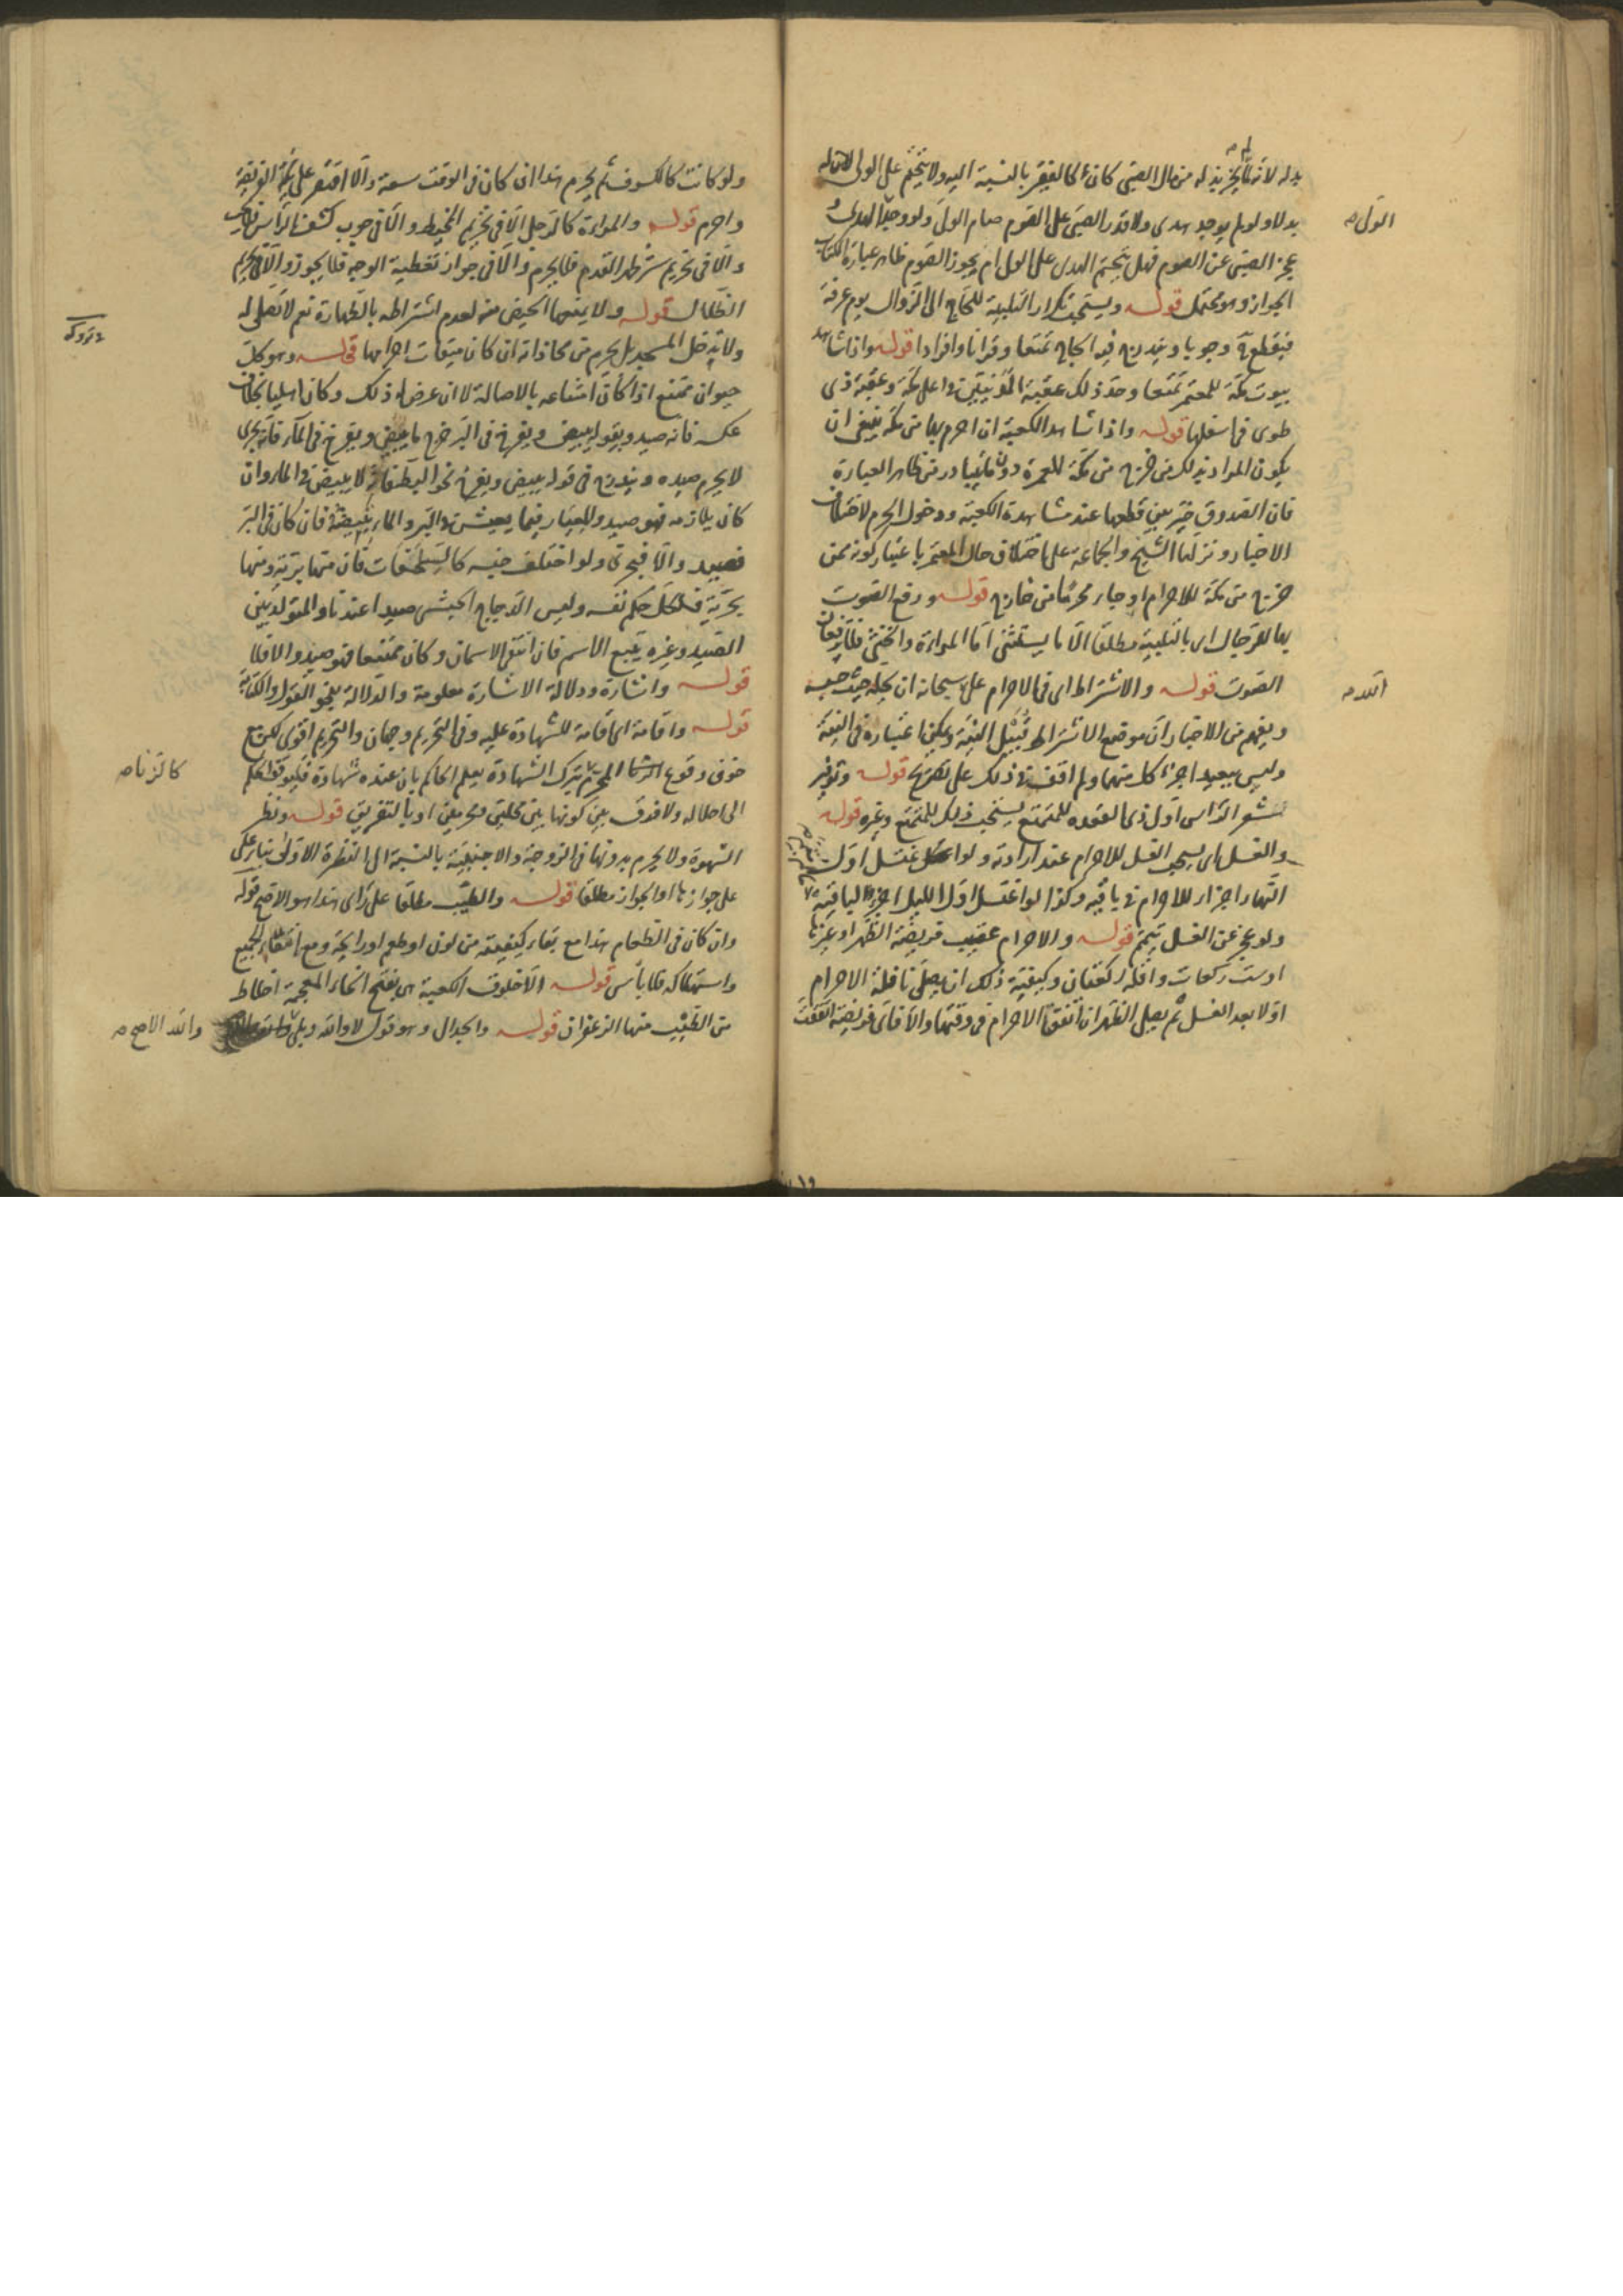 بدله لانه لم يجز بذله من مال الصبى كان كالفقير بالنسبة اليه ولا يتحتم على الولى لان له
بدلا ولو لم يوجد هدى ولا قدر الصبى على الصوم صام الولى ولو وجد الهدى و
عجز الصبى عن الصوم فهل يتحتم الهدى على الولى ام يجوز الصوم ظاهر عبارة الكتاب
الجواز وهو محتمل قوله ويستحب تكرار التلبية للحاج الى الزوال يوم عرفة
فيقطع وجوبا ويندرج فيه الحاج تمتعا وقرانا وافرادا قوله واذا شاهد
بيوت مكة للمعتمر تمتعا وحد ذلك عقبة المدنيين فى اعلى مكة وعقبة ذى
طوى فى اسفلها قوله واذا شاهد الكعبة ان احرم بها من مكة ينبغى ان
يكون المراد بذلك من خرج من مكة للعمرة دون ما يتبادر من ظاهر العبارة
فان الصدوق خير بين قطعها عند مشاهدة الكعبة ودخول الحرم لاختلاف
الاخبار ونزلها الشيخ والجماعة على اختلاف حال المعتمر باعتبار كونه ممن
خرج من مكة للاحرام او جاء محرما من خارج قوله ورفع الصوت
بها للرجال اى بالتلبية مطلقا الا ما يستثنى اما المراءة والخنثى فلا يرفعان
الصوت قوله والاشتراط اى فى الاحرام على سبحانه ان يحله حيث حبسه
ويفهم من الاخبار ان موضع الاشتراط قبيل النية ويمكن اعتباره فى النية
وليس ببعيد اجزاء كل منهما ولم اقف فى ذلك على تصريح قوله وتوفير
شعر الراس اول ذى القعده للمتمتع يستحب ذلك للمتمتع وغيره قوله
والغسل اى يستحب الغسل للاحرام عند ارادته ولو اغتسل اول
النهار اجزاء للاحرام فى باقيه وكذا لو اغتسل اول الليل اجزاه لباقيه
ولو عجز عن الغسل تيمم قوله والاحرام عقيب فريضة الظهر او غيرها
او ست ركعات واقله ركعتان وكيفية ذلك ان يصلى نافلة الاحرام
اولا بعد الغسل ثم يصلى الظهر ان اتفق الاحرام فى وقتها والا فاى فريضة اتفقت
الولى
الله
ولو كانت كالكسوف ثم يحرم هذا ان كان فى الوقت سعة والا اقتصر على الفريضة
واحرم قوله والمراءة كالرجل الا فى تحريم المخيط والا فى وجوب كشف الراس
والا فى تحريم ستر ظهر القدم فلا يحرم والا فى جواز تغطية الوجه فلا يجوز والا فى تحريم
الظلال قوله ولا يمنعها الحيض منه لعدم اشتراطه بالطهارة نعم لا تصلى له
ولا تدخل المسجد بل تحرم من محاذاته ان كان ميقات احرامها قوله وهو كل
حيوان ممتنع اذا كان امتناعه بالاصالة لا ان عرض له ذلك وكان اهليا بخلاف
عكسه فانه صيد وبقوله يبيض ويفرخ فى البر خرج ما يبيض ويفرخ فى الماء فانه بحرى
لا يحرم صيده ويندرج فى قوله يبيض ويفرخ نحو البط فانه لا يبيض فى الماء وان
كان يلازمه فهو صيد والمعيار فيما يعيش فى البر والماء بالبيض فان كان فى البر
فصيد والا فبحرى ولو اختلف جنسه كالسلحفاة فان منها برية ومنها
بحرية فلكل حكم نفسه وليس الدجاج الحبشى صيدا عندنا والمتولد بين
الصيد وغيره يتبع الاسم فان انتفى الاسمان وكان ممتنعا فهو صيد والا فلا
قوله واشارة ودلالة الاشارة معلومة والدلالة بنحو القول والكتابة
قوله واقامة اى اقامة للشهادة عليه وفى التحريم وجهان والتحريم اقوى لكن مع
خوف وقوع المحرم بترك الشهادة يعلم الحاكم بان عنده شهادة فليوقف الحكم
الى احلاله ولا فرق بين كونها بين محلين ومحرمين او بالتفريق قوله ونظر
الشهوة ولا يحرم بدونها فى الزوجة والاجنبية بالنسبة الى النظرة الاولى بناء على
على جوازها او الجواز مطلقا قوله والطيب مطلقا على راى هذا هو الاصح قوله
وان كان فى الطعام هذا مع بقاء كيفيته من لون او طعم او رايحة ومع انتفاء الجميع
واستهلاكه فلا باس قوله الا خلوق الكعبة هى بفتح الخاء المعجمة اخلاط
من الطيب منها الزعفران قوله والجدال وهو قول لا والله وبلى
متروكه
كالزنا
والله الاصح